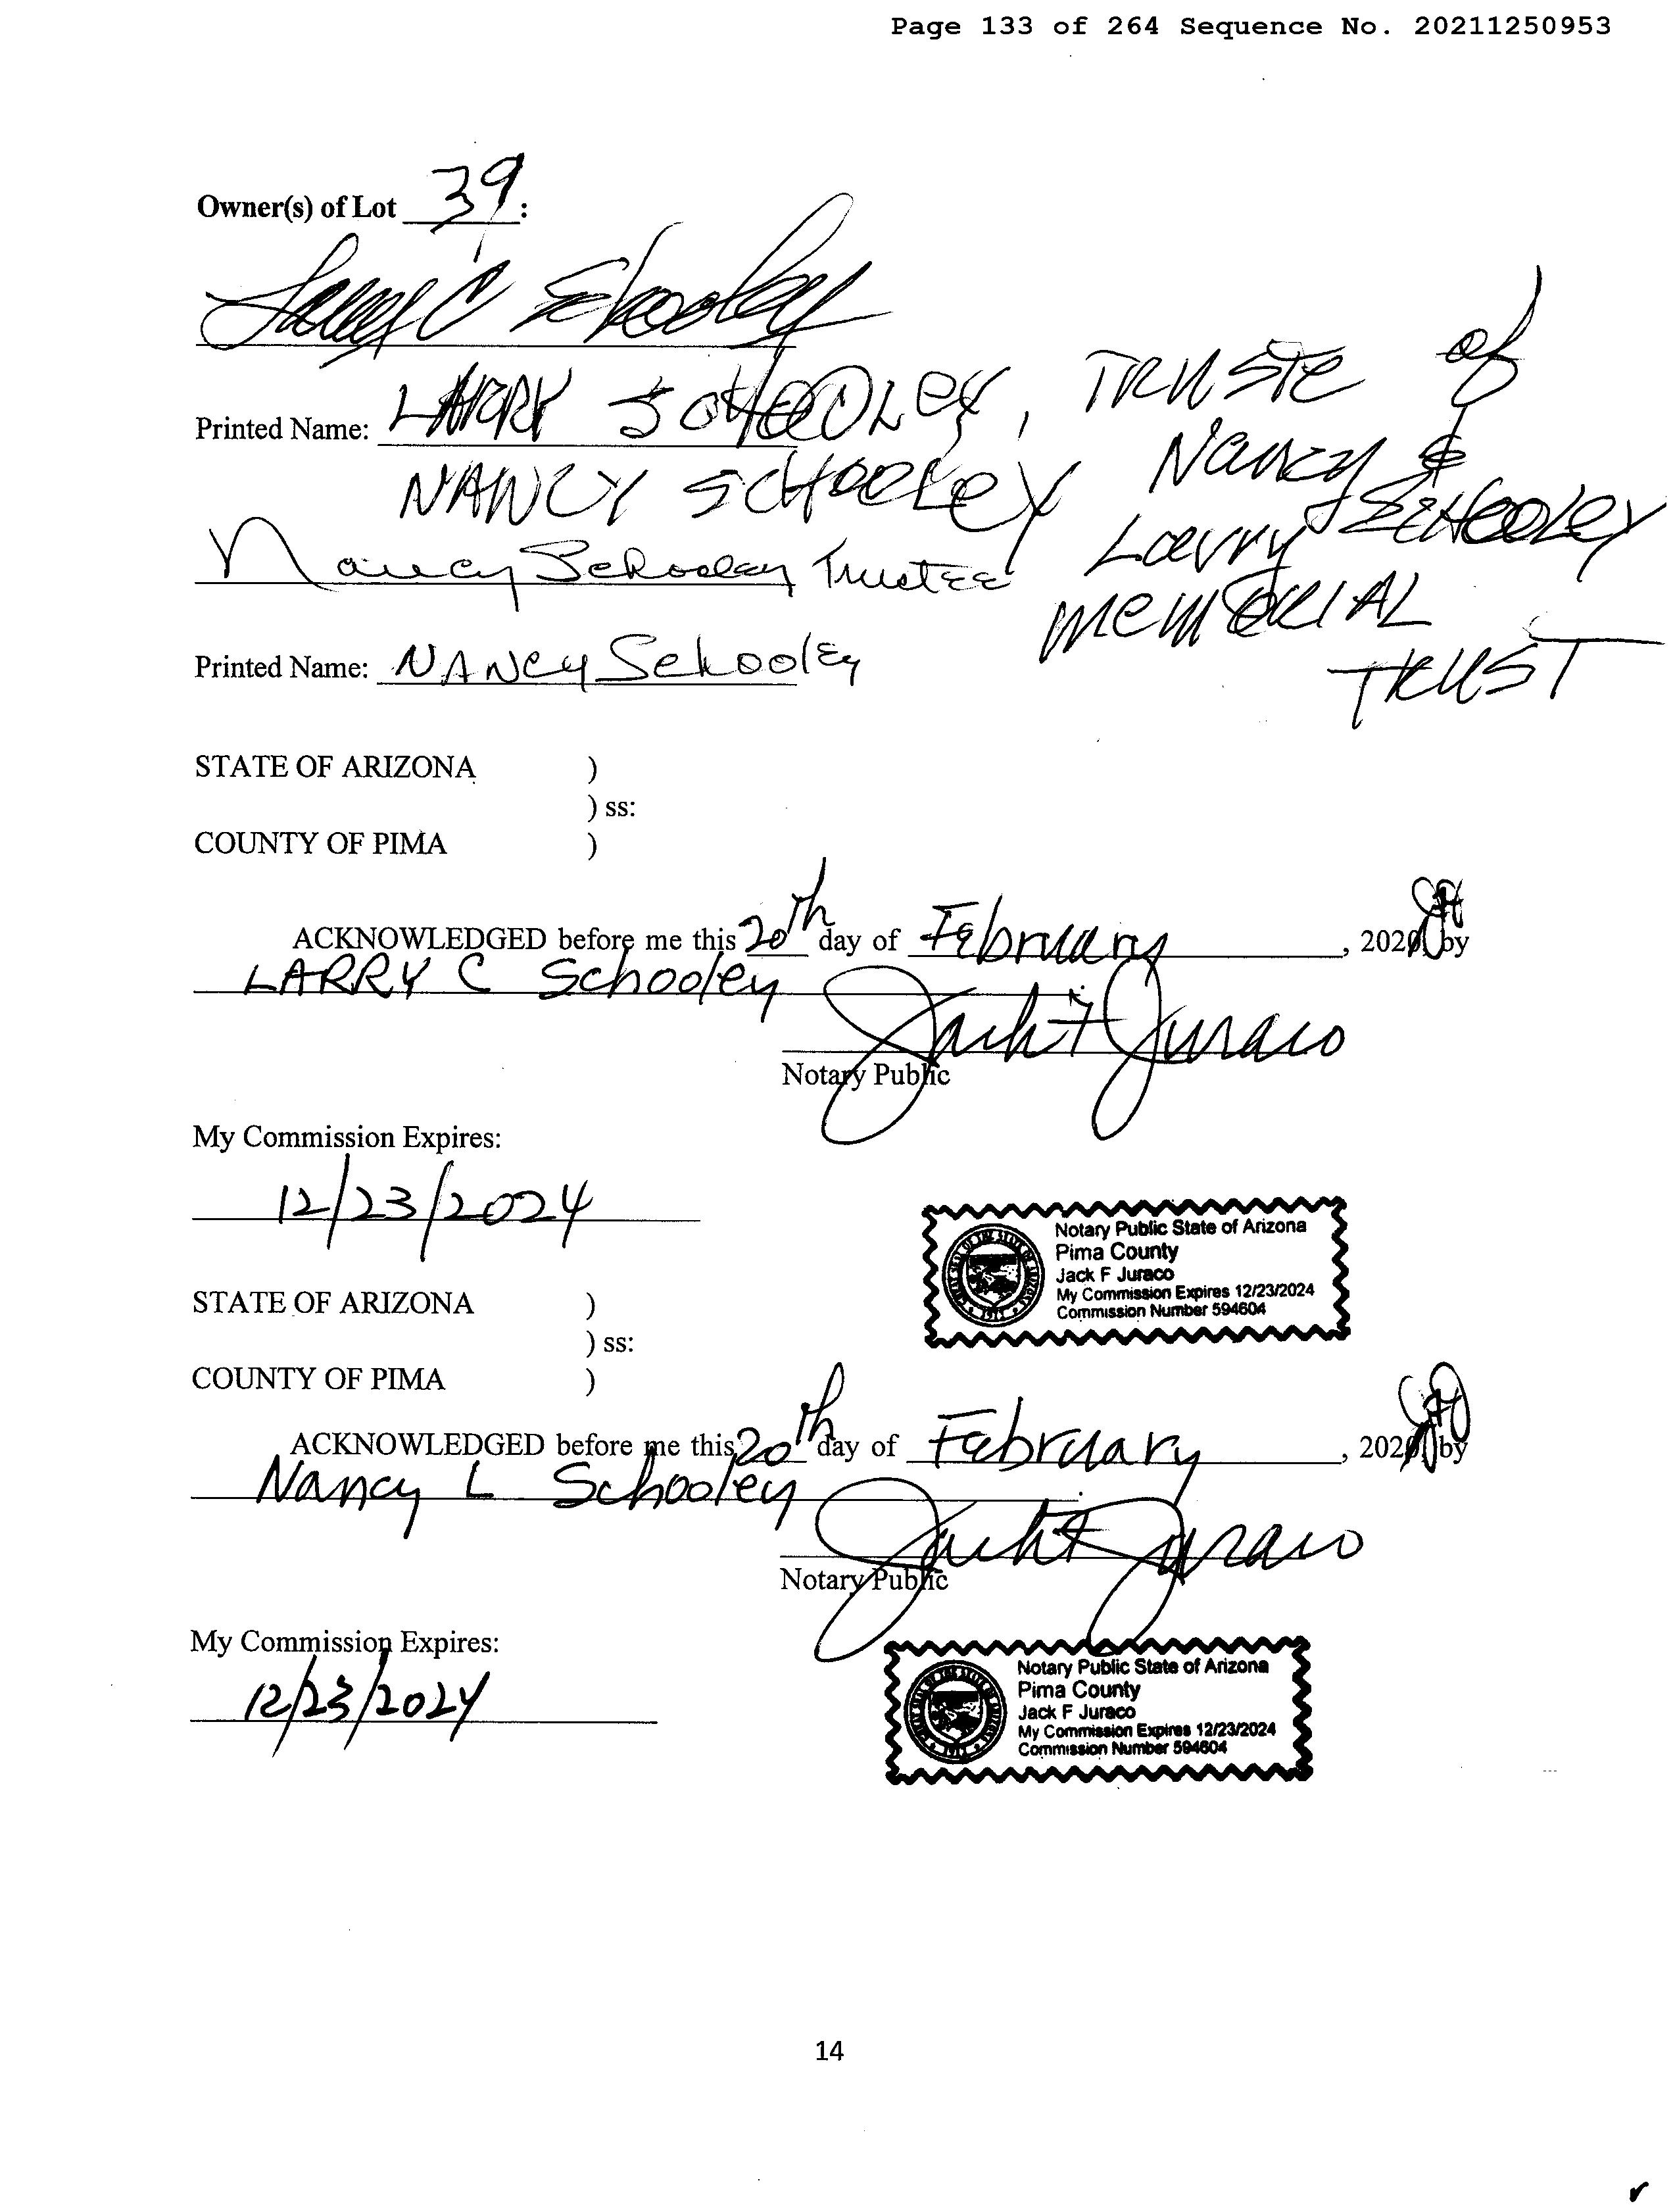 Page 133 of 264 Sequence No. 20211250953
Owner(s) of Lot 39:
Larry C Schooley
Printed Name: LARRY SCHOOLEY, TRUSTE of
NANCY SCHOOLEY Nancy &
Nancy Schooley Trustee Larry SCHOOLEY
MEMORIAL
Printed Name: NANCY Schooley TRUST
STATE OF ARIZONA )
) ss:
COUNTY OF PIMA )
ACKNOWLEDGED before me this 20th day of February, 202 by
LARRY C Schooley
Jack F Juraco
Notary Public
My Commission Expires:
12/23/2024
Notary Public State of Arizona
Pima County
Jack F Juraco
My Commission Expires 12/23/2024
Commission Number 594604
STATE OF ARIZONA )
) ss:
COUNTY OF PIMA )
ACKNOWLEDGED before me this 20th day of February, 202 by
Nancy L Schooley
Jack F Juraco
Notary Public
My Commission Expires:
12/23/2024
Notary Public State of Arizona
Pima County
Jack F Juraco
My Commission Expires 12/23/2024
Commission Number 594604
14